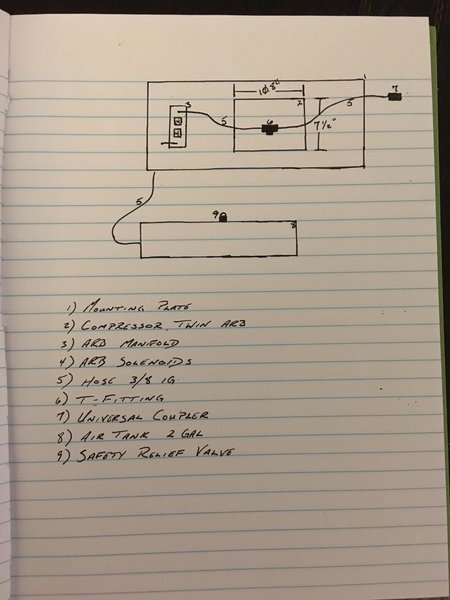 1
7
3
2
5
4
4
5
6
7 1/2"
5
9
8
1) MOUNTING PLATE
2) COMPRESSOR, TWIN ARB
3) ARB MANIFOLD
4) ARB SOLENOIDS
5) HOSE 3/8 IG.
6) T-FITTING
7) UNIVERSAL COUPLER
8) AIR TANK 2 GAL
9) SAFETY RELIEF VALVE